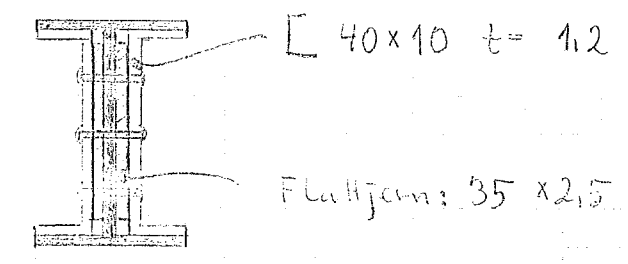 [ 40×10 t= 1,2
Flattjern: 35 ×2,5